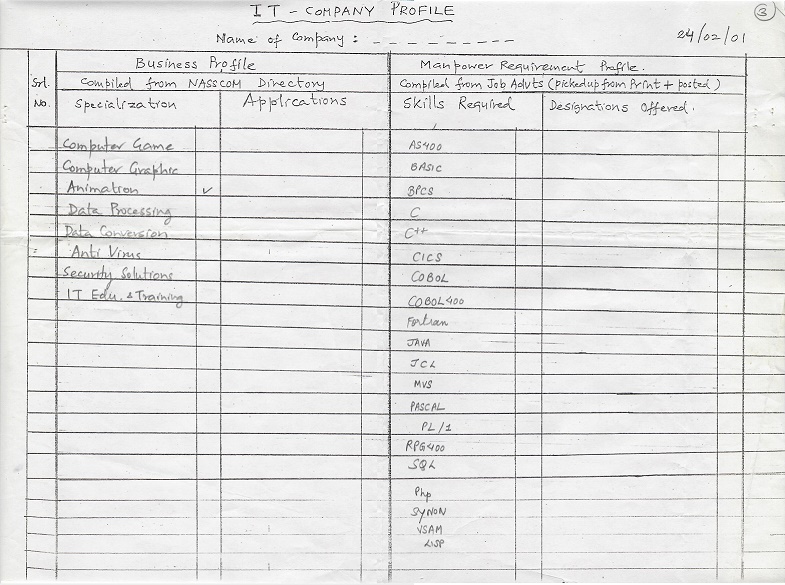 IT - COMPANY PROFILE
3
Name of Company : _ _ _ _ _ _ _ _ _
24/02/01
Business Profile
Manpower Requirement Profile.
Srl. No.
Compiled from NASSCOM Directory
Compiled from Job Advts (picked up from Print + posted)
Specialization
Applications
Skills Required
Designations Offered.
Computer Game
AS400
Computer Graphic
BASIC
Animation ✓
BPCS
Data Processing
C
Data Conversion
C++
Anti Virus
CICS
Security Solutions
COBOL
IT Edu. & Training
COBOL400
Fortran
JAVA
JCL
MVS
PASCAL
PL/1
RPG400
SQL
Php
SYNON
VSAM
LISP